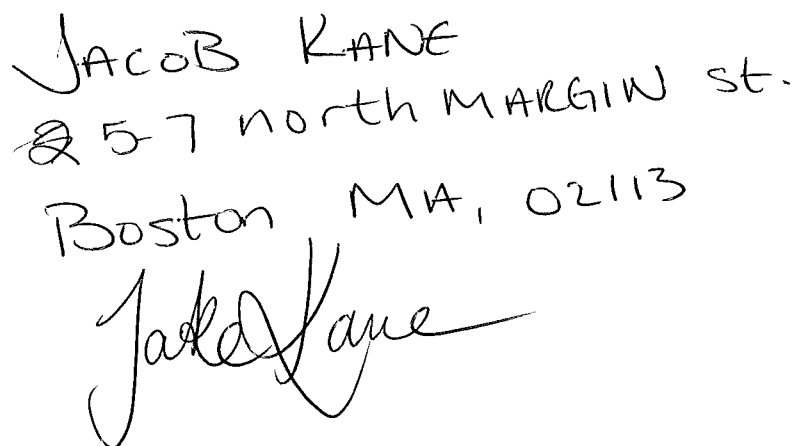 JACOB KANE
257 north MARGIN st.
Boston MA, 02113
Jake Kane